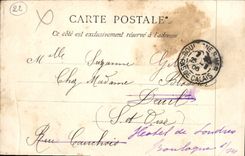 22
CARTE POSTALE
Ce côté est exclusivement réservé à l'adresse
Mlle Suzanne
Chez Madame
Deuil
S et Oise
Rue Cauchois
Hotel de Londres
Boulogne s/m